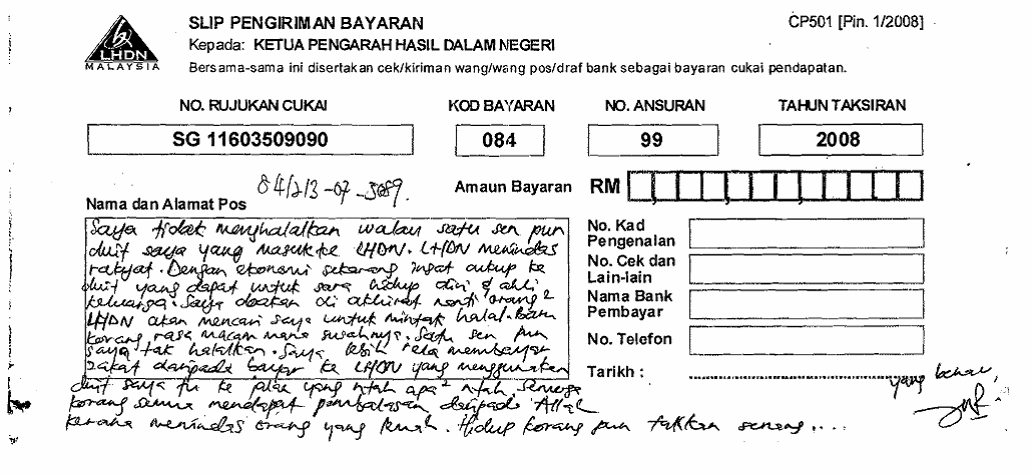 SLIP PENGIRIMAN BAYARAN
CP501 [Pin. 1/2008]
Kepada: KETUA PENGARAH HASIL DALAM NEGERI
LHDN
MALAYSIA
Bersama-sama ini disertakan cek/kiriman wang/wang pos/draf bank sebagai bayaran cukai pendapatan.
NO. RUJUKAN CUKAI KOD BAYARAN NO. ANSURAN TAHUN TAKSIRAN
SG 11603509090 084 99 2008
84/213-07-3089.
Amaun Bayaran RM
Nama dan Alamat Pos
Saya tidak menghalalkan walau satu sen pun
duit saya yang masuk ke LHDN. LHDN menindas
rakyat. Dengan ekonomi sekarang ingat cukup ke
duit yang dapat untuk sara hidup diri & ahli
keluarga. Saya doakan di akhirat nanti orang2
LHDN akan mencari saya untuk mintak halal. Baru
korang rasa macam mana susahnya. Satu sen pun
saya tak halalkan. Saya lebih rela membayar
zakat daripada bayar ke LHDN yang menggunakan
duit saya tu ke plak yang ntah apa2 ntah. Semoga
korang semua mendapat pembalasan daripada Allah
kerana menindas orang yang lemah. Hidup korang pun takkan senang....
No. Kad
Pengenalan
No. Cek dan
Lain-lain
Nama Bank
Pembayar
No. Telefon
Tarikh :
yang benar,